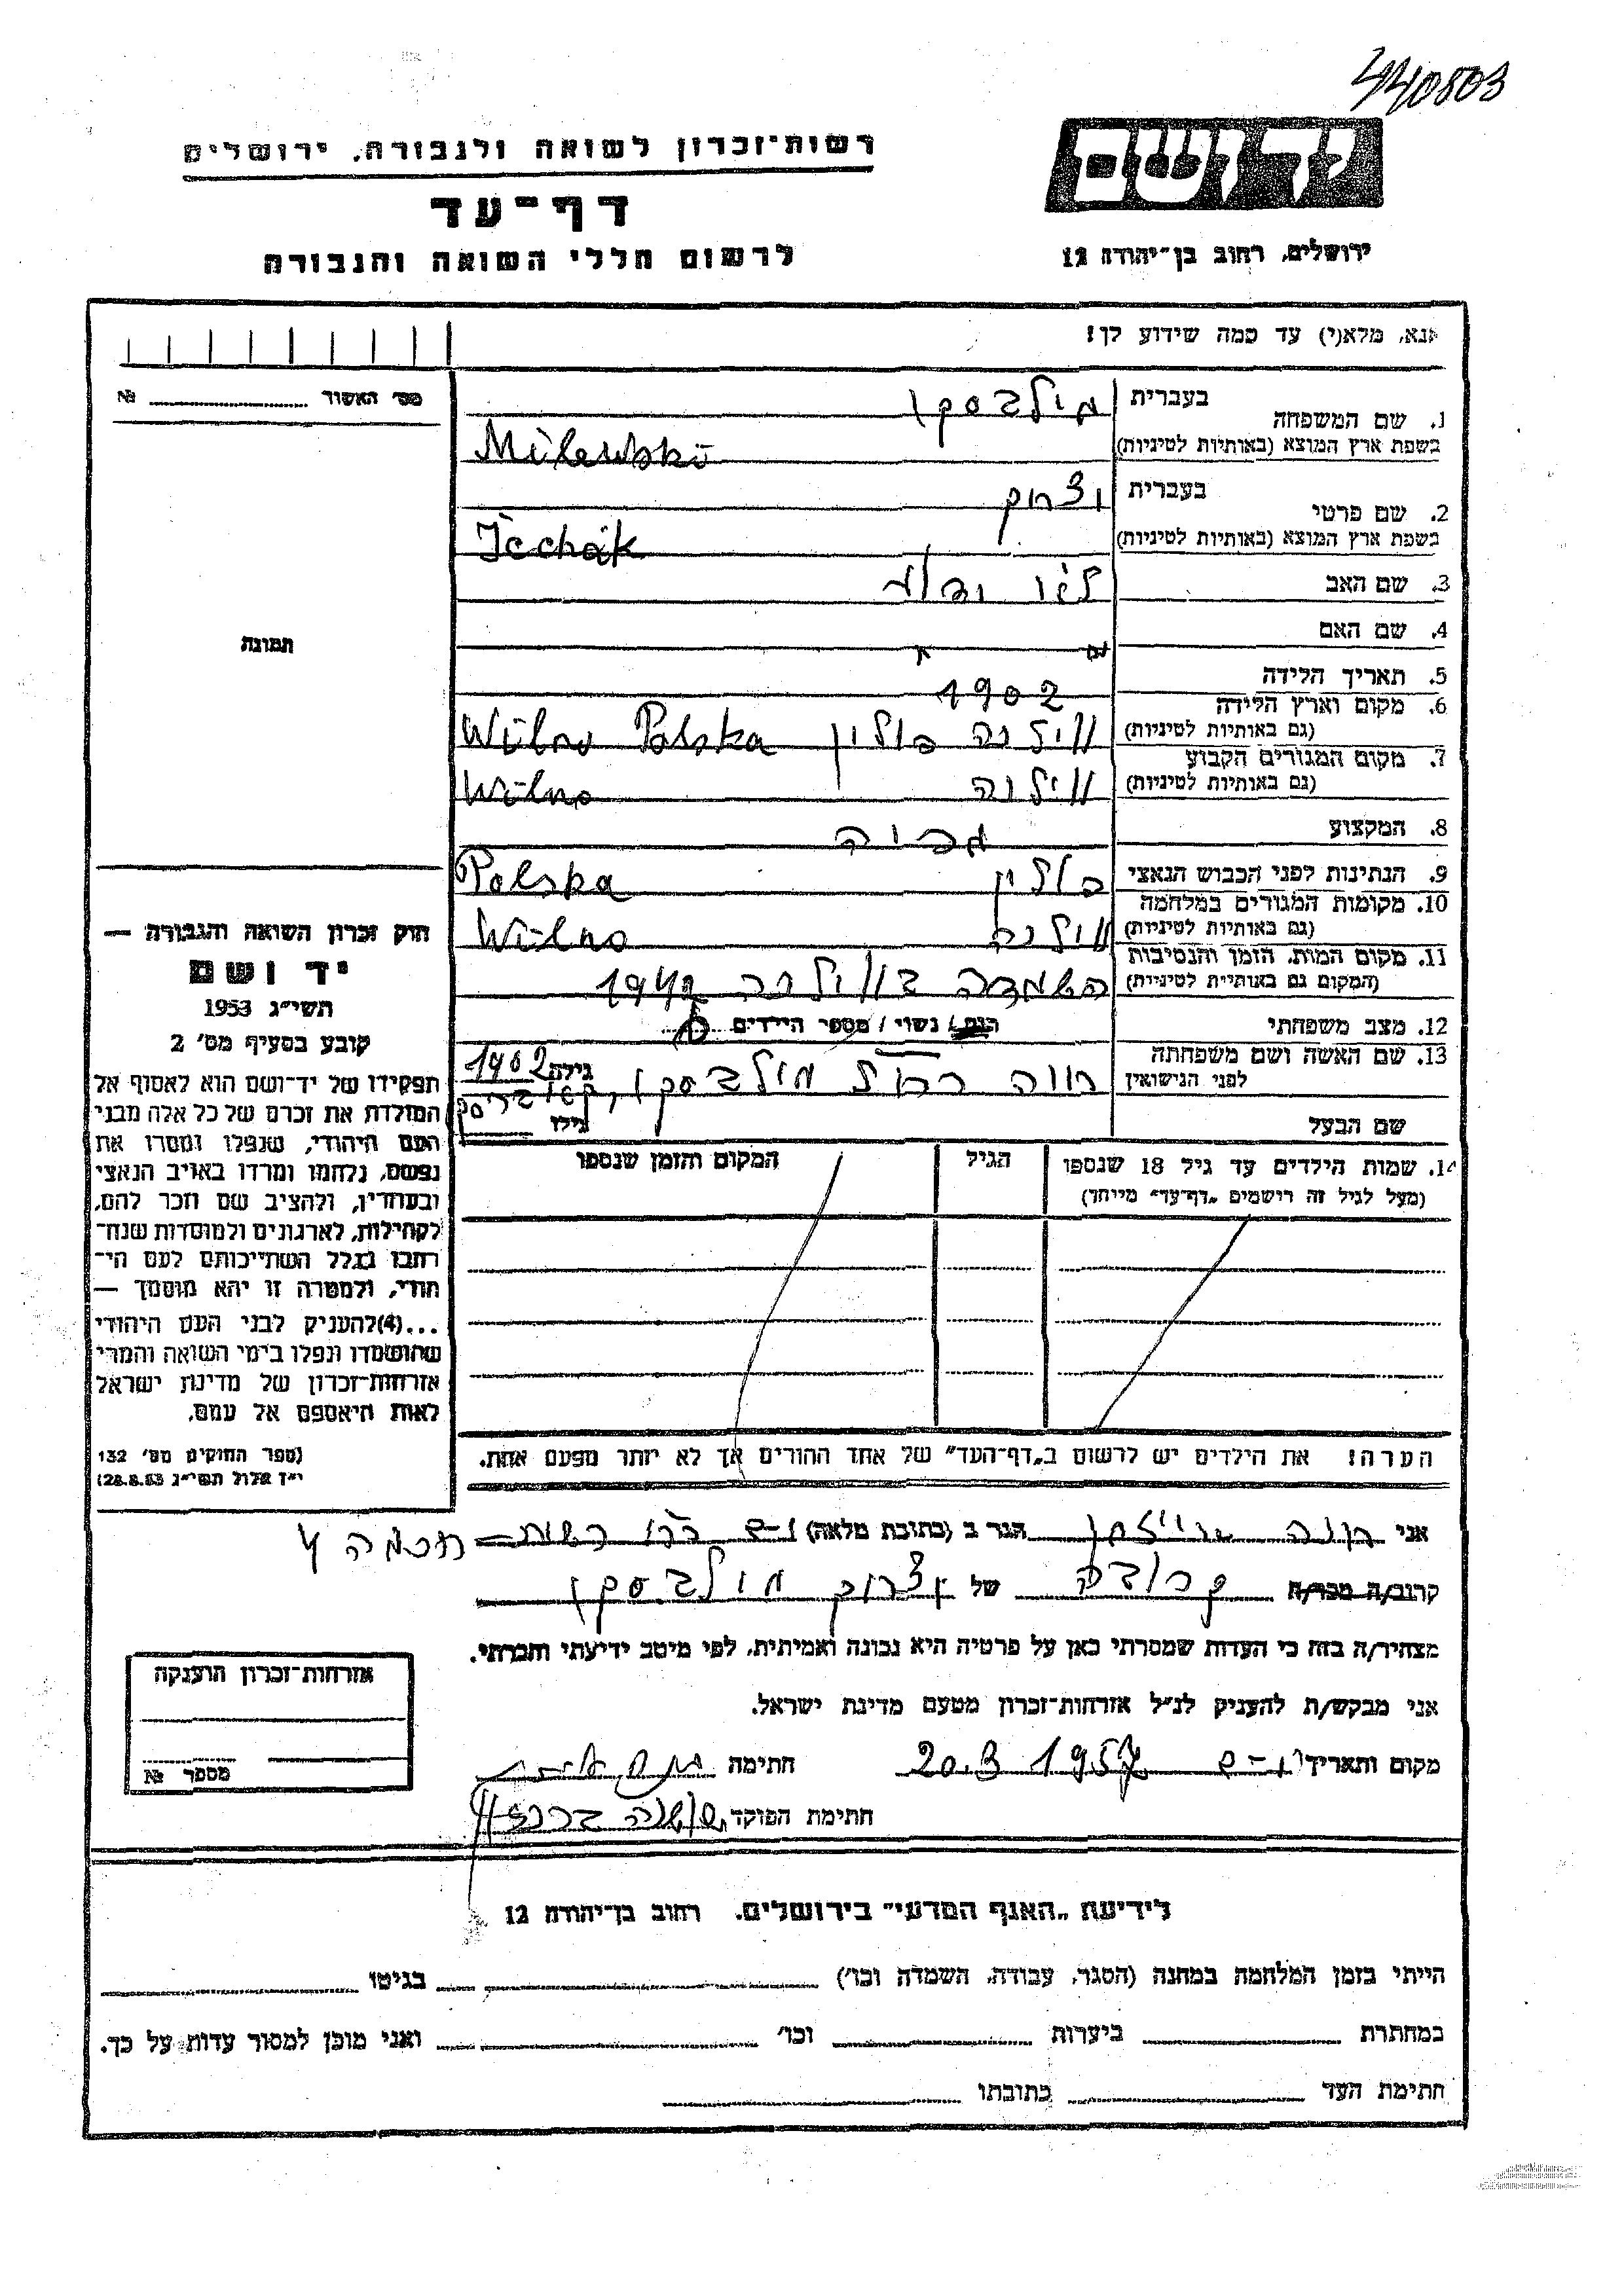 440803
יד ושם
ירושלים, רחוב בן־יהודה 12
רשות־זכרון לשואה ולגבורה, ירושלים
דף־עד
לרשום חללי השואה והגבורה
אנא, מלא(י) עד כמה שידוע לך!
מס׳ האשור № 
1. שם המשפחה בעברית מילבסקי
בשפת ארץ המוצא (באותיות לטיניות) Milewski
2. שם פרטי בעברית יצחק
בשפת ארץ המוצא (באותיות לטיניות) Icchak
3. שם האב לא ידוע
4. שם האם
5. תאריך הלידה 1902
6. מקום וארץ הלידה
(גם באותיות לטיניות) ווילנה פולין Wilno Polska
7. מקום המגורים הקבוע
(גם באותיות לטיניות) ווילנה Wilno
8. המקצוע
9. הנתינות לפני הכבוש הנאצי פולין Polska
10. מקומות המגורים במלחמה
(גם באותיות לטיניות) ווילנה Wilno
11. מקום המות, הזמן והנסיבות
(המקום גם באותיית לטיניות) השמדה בווילנה 1942
12. מצב משפחתי רווק / נשוי / מספר הילדים
13. שם האשה ושם משפחתה
לפני הנישואין חוה מילבסקי, גילה 1902
שם הבעל גילו
14. שמות הילדים עד גיל 18 שנספו
(מעל לגיל זה רישמים „דף־עד״ מייחד)
הגיל
המקום והזמן שנספו
הערה! את הילדים יש לרשום ב„דף־העד״ של אחד ההורים אך לא יותר מפעם אחת.
תמונת
חוק זכרון השואה והגבורה —
יד ושם
תשי״ג 1953
קובע בסעיף מס׳ 2
תפקידו של יד־ושם הוא לאסוף אל
המולדת את זכרם של כל אלה מבני
העם היהודי, שנפלו ומסרו את
נפשם, נלחמו ומרדו באויב הנאצי
ובעוזריו, ולהציב שם וזכר להם,
לקהילות, לארגונים ולמוסדות שנח־
רחבו בגלל השתייכותם לעם הי־
הודי, ולמטרה זו יהא מוסמך —
...(4)להעניק לבני העם היהודי
שהושמדו ונפלו בימי השואה והמרי
אזרחות־זכרון של מדינת ישראל
לאות היאספם אל עמם.
(ספר החוקים מס׳ 132
י״ז אלול תשי״ג 28.8.53)
אני חנה הגר ב (כתובת מלאה) י־ם
קרוב/ה מכר/ה קרובה של יצחק מילבסקי
מצהיר/ה בזה כי העדות שמסרתי כאן על פרטיה היא נכונה ואמיתית, לפי מיטב ידיעתי והכרתי.
אני מבקש/ת להעניק לנ״ל אזרחות־זכרון מטעם מדינת ישראל.
מקום ותאריך י־ם 20.3 1957 חתימה
חתימת הפוקד שושנה
אזרחות־זכרון הוענקה
מספר №
לידיעת „האגף המדעי״ בירושלים. רחוב בן־יהודה 12
הייתי בזמן המלחמה במחנה (הסגר, עבודה, השמדה וכו׳) בגיטו
במחתרת ביערות וכו׳ ואני מוכן למסור עדות על כך.
חתימת העד כתובתו